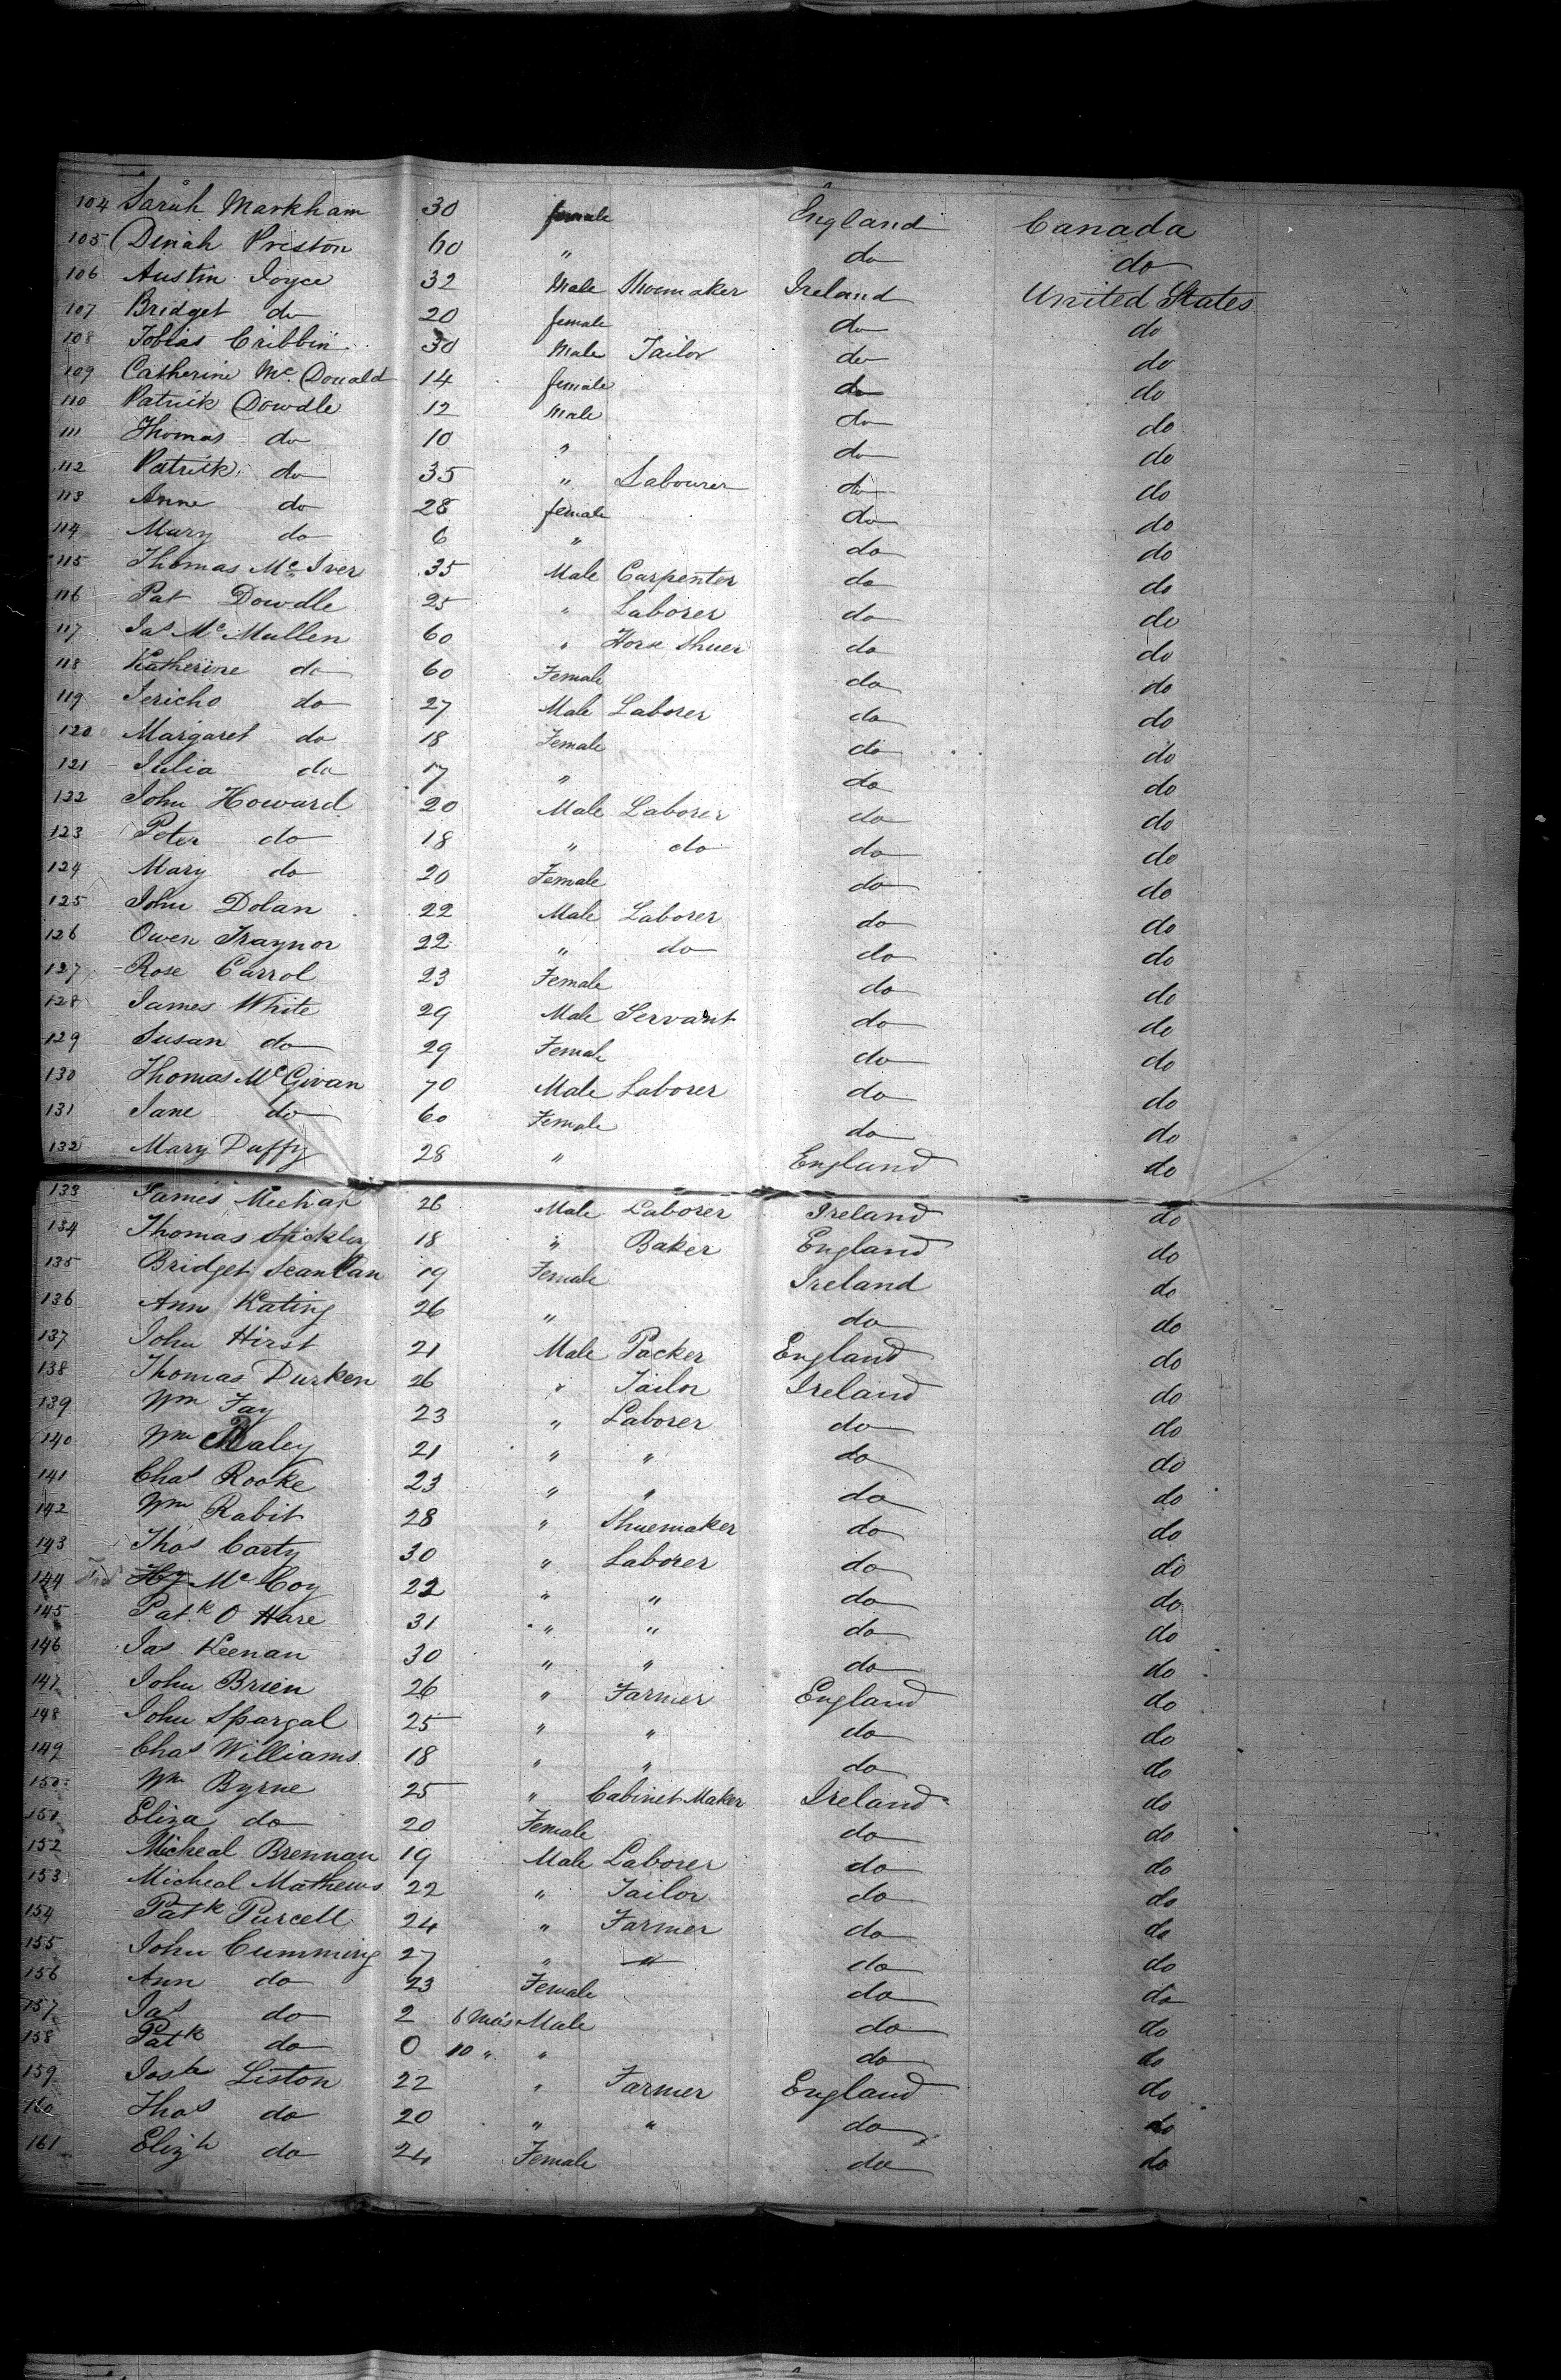 104 Sarah Markham 30 female England Canada
105 Dinah Preston 60 " do do
106 Austin Joyce 32 Male Shoemaker Ireland United States
107 Bridget do 20 female do do
108 Tobias Cribbin 30 Male Tailor do do
109 Catherine Mc. Donald 14 female do do
110 Patrick Dowdle 12 male do do
111 Thomas do 10 " do do
112 Patrick do 35 " Labourer do do
113 Anne do 28 female do do
114 Mary do 6 " do do
115 Thomas Mc Iver 35 Male Carpenter do do
116 Pat Dowdle 25 " Laborer do do
117 Jas Mc Mullen 60 " Horse Shuer do do
118 Katherine do 60 Female do do
119 Jericho do 27 Male Laborer do do
120 Margaret do 18 Female do do
121 Julia do 17 " do do
122 John Howard 20 Male Laborer do do
123 Peter do 18 " do do do
124 Mary do 20 Female do do
125 John Dolan 22 Male Laborer do do
126 Owen Traynor 22 " do do do
127 Rose Carrol 23 Female do do
128 James White 29 Male Servant do do
129 Susan do 29 Female do do
130 Thomas Mc Givan 70 Male Laborer do do
131 Jane do 60 Female do do
132 Mary Duffy 28 " England do
133 James 26 Male Laborer Ireland do
134 Thomas 18 " Baker England do
135 Bridget Scanlan 19 Female Ireland do
136 Ann Kating 26 " do do
137 John Hirst 21 Male Packer England do
138 Thomas Durken 26 " Tailor Ireland do
139 Wm Fay 23 " Laborer do do
140 Wm 21 " " do do
141 Chas Rooke 23 " " do do
142 Wm Rabit 28 " Shuemaker do do
143 Thos Carty 30 " Laborer do do
144 Hy Mc Coy 22 " " do do
145 Patk O Hare 31 " " do do
146 Jas Keenan 30 " " do do
147 John Brien 26 " Farmer England do
148 John Spargal 25 " " do do
149 Chas Williams 18 " " do do
150 Wm Byrne 25 " Cabinet Maker Ireland do
151 Eliza do 20 Female do do
152 Micheal Brennan 19 Male Laborer do do
153 Micheal Mathews 22 " Tailor do do
154 Patk Purcell 24 " Farmer do do
155 John Cumming 27 " " do do
156 Ann do 23 Female do do
157 Jas do 2 6 Mos Male do do
158 Patk do 0 10 " " do do
159 Josh Liston 22 " Farmer England do
160 Thos do 20 " " do do
161 Elizh do 24 Female do do